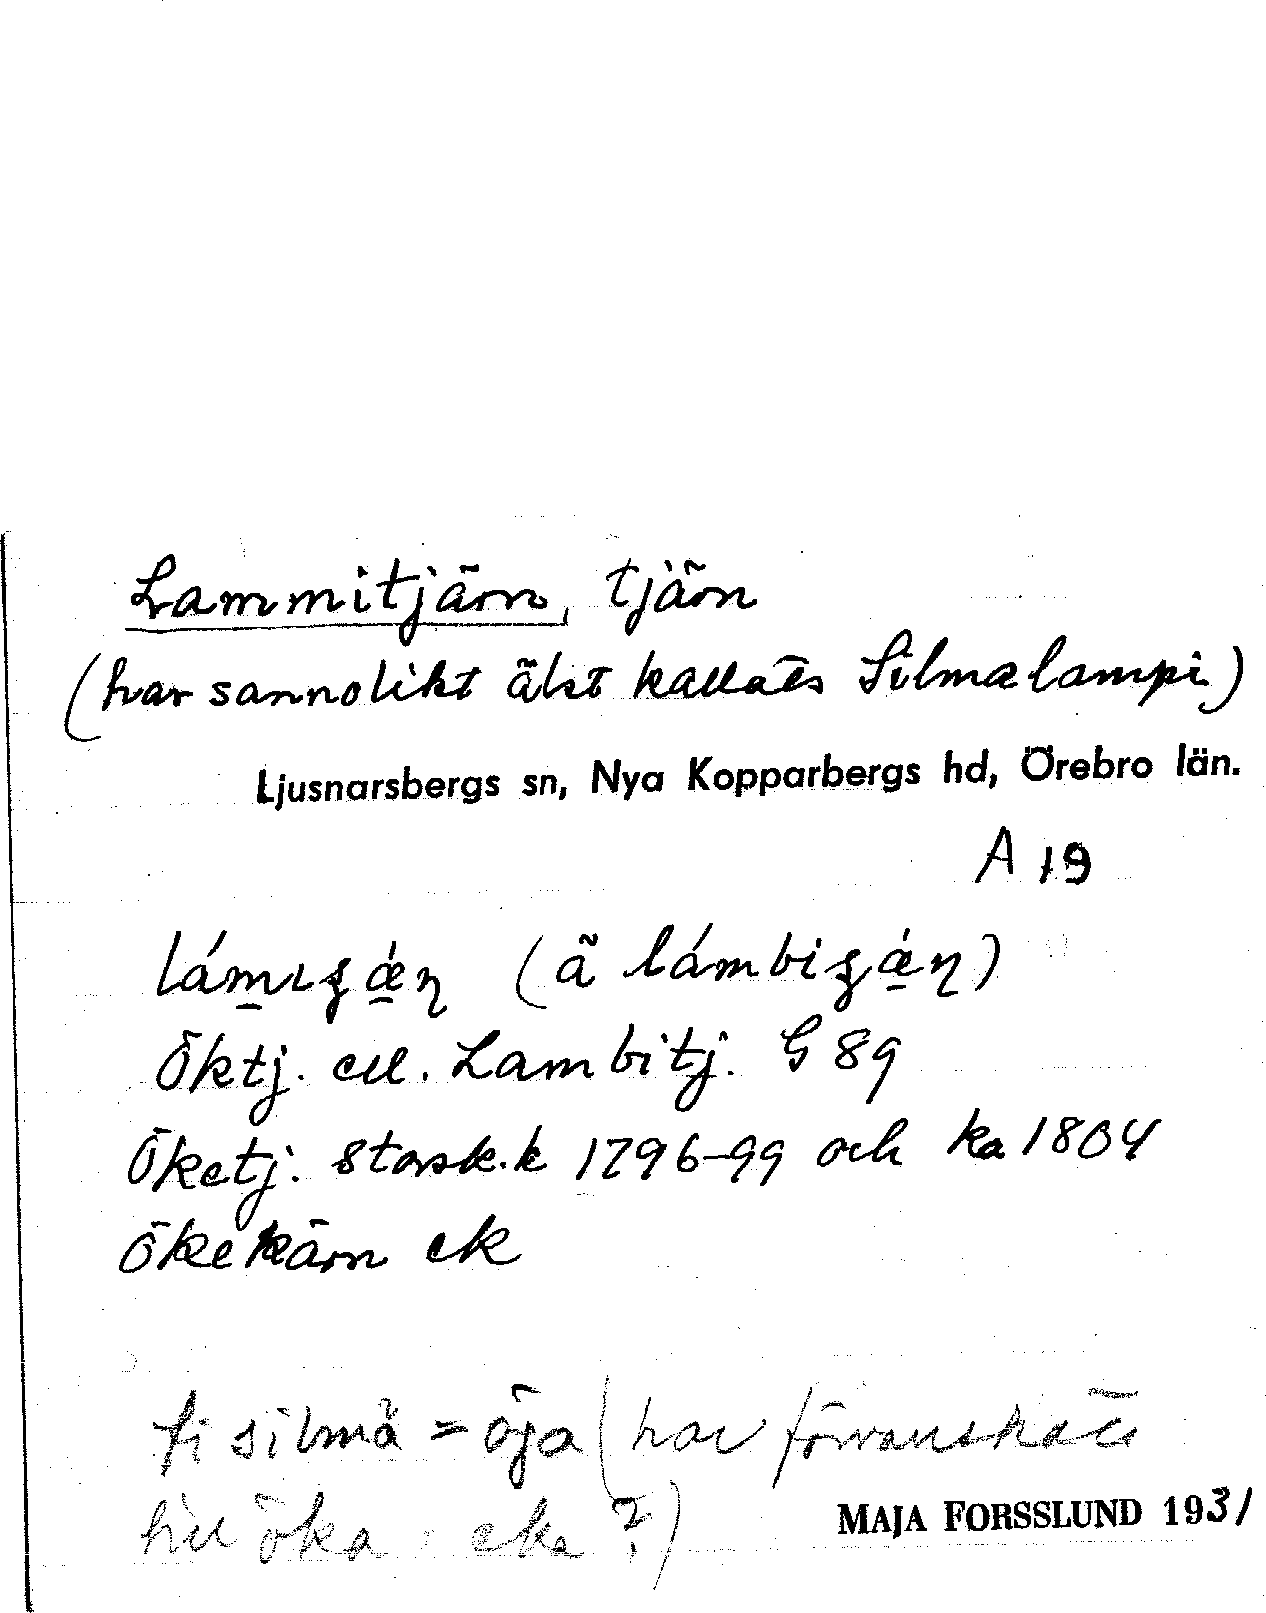 Lammitjärn, tjärn
(har sannolikt älst kallats Silmalampi)
Ljusnarsbergs sn, Nya Kopparbergs hd, Örebro län.
A 19
(ä
Öktj. ell. Lambitj. G 89
Öketj. storsk.k 1796-99 och ka 1804
Ökekärn ek
fi silmä = öga (har förvanskats
till öka eka ?)
MAJA FORSSLUND 1931